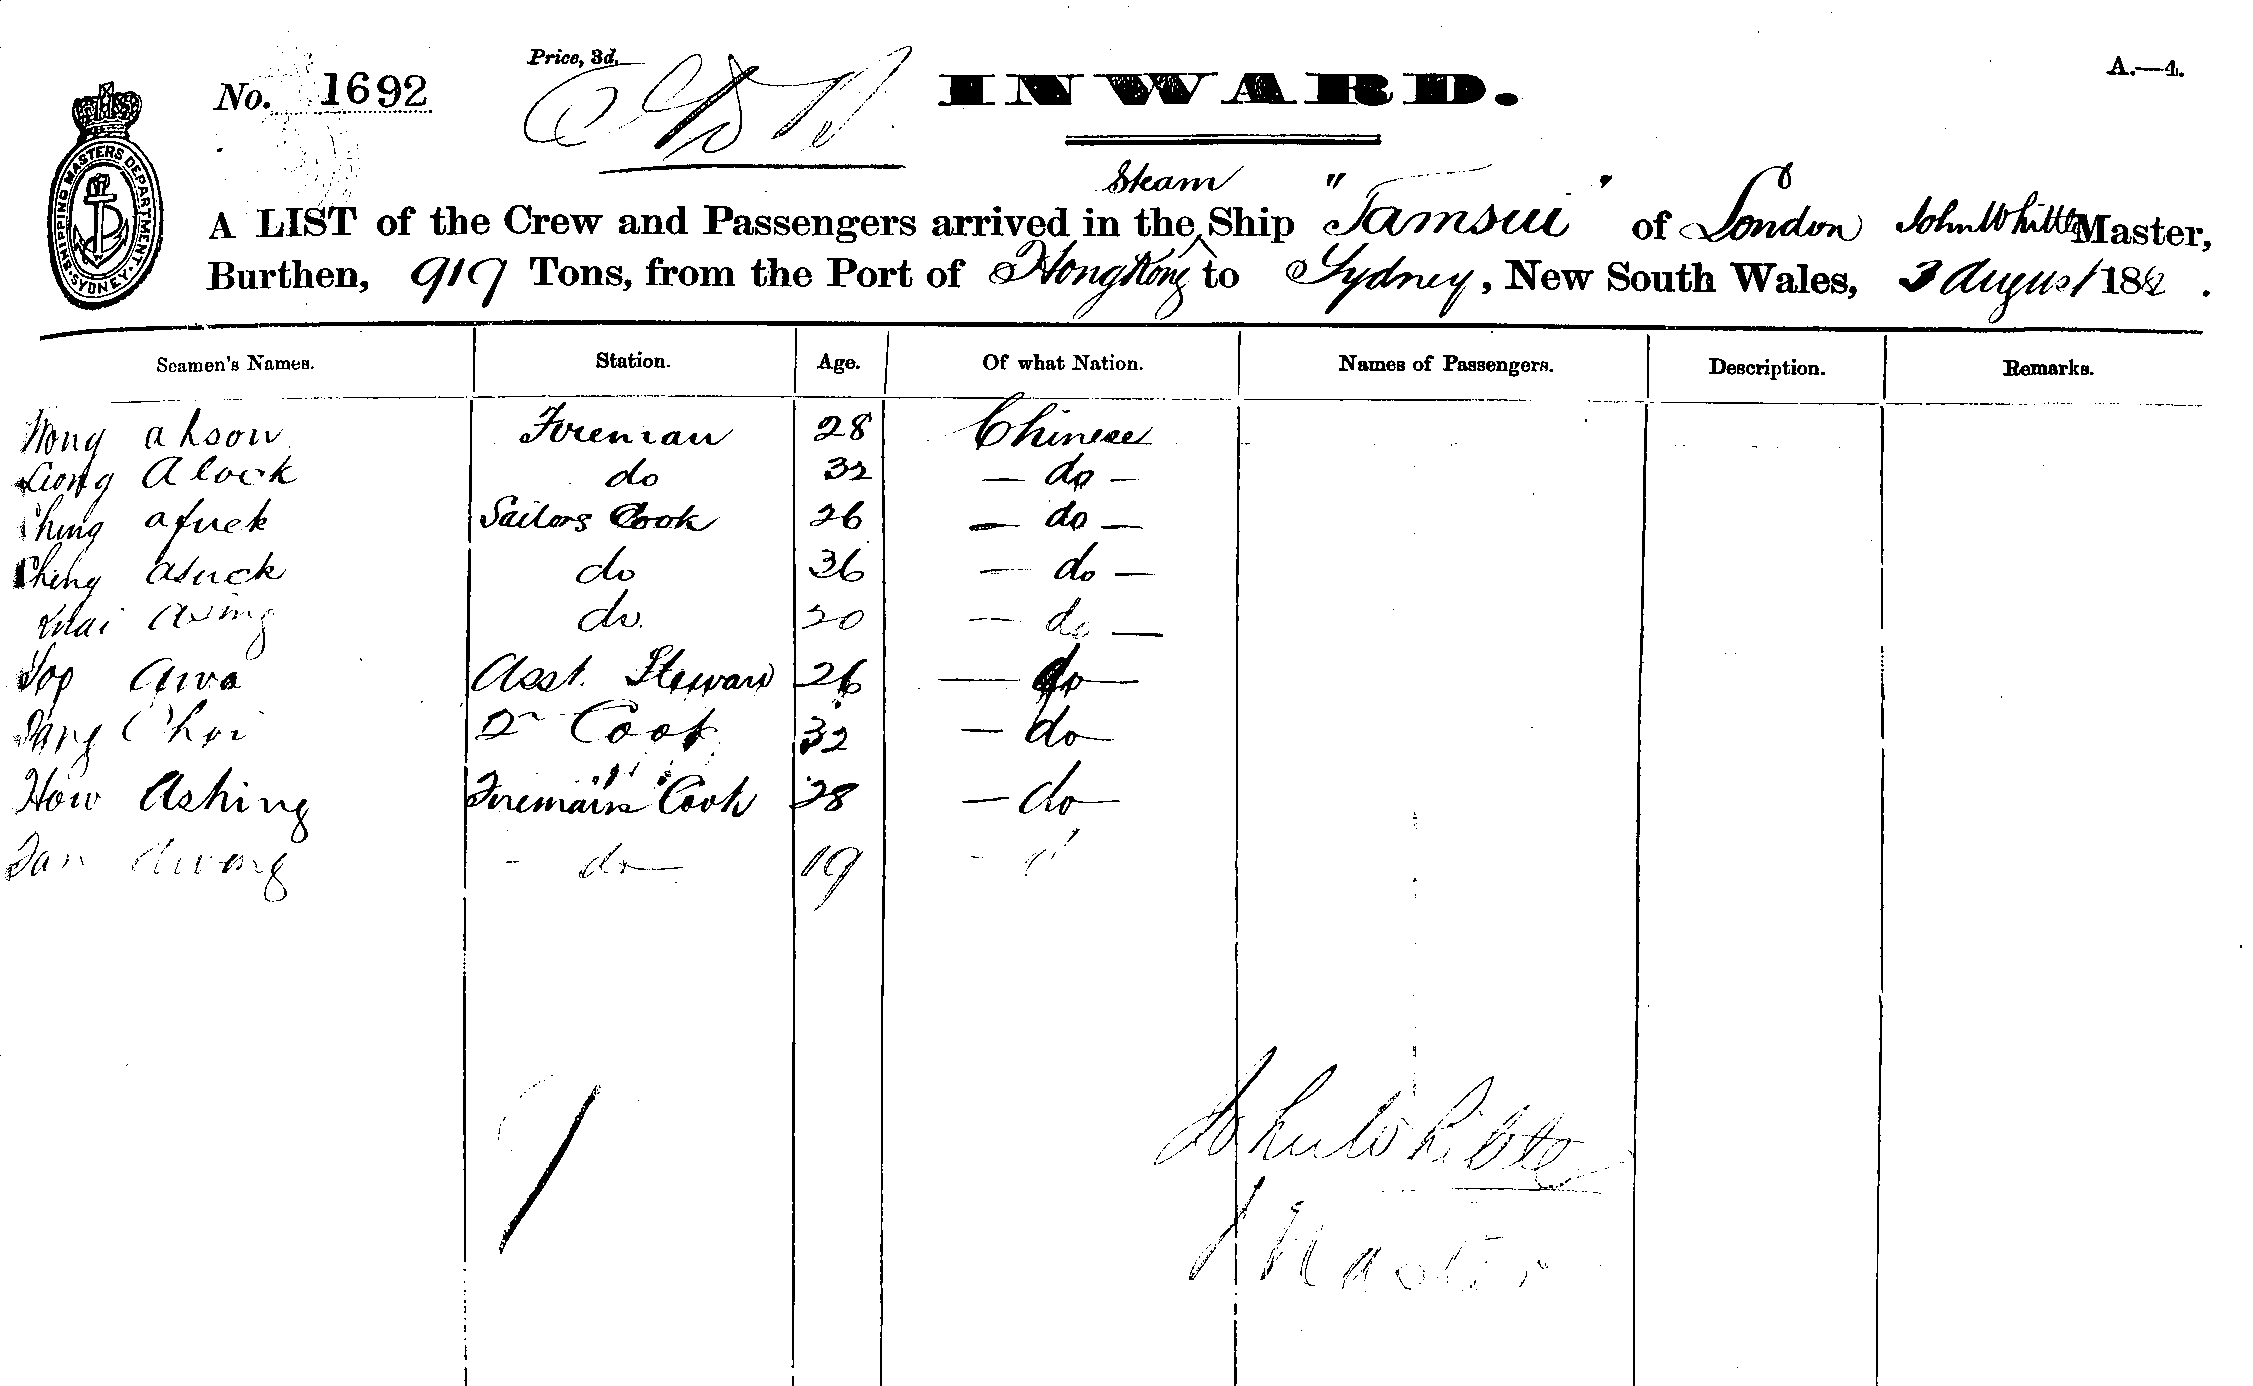 No. 1692
Price, 3d.
INWARD.
A.—4.
SHIPPING MASTERS DEPARTMENT · SYDNEY ·
Steam
A LIST of the Crew and Passengers arrived in the Ship "Tamsui" of London John Whittle Master,
Burthen, 919 Tons, from the Port of Hong Kong to Sydney, New South Wales, 3 August 188
Seamen's Names. Station. Age. Of what Nation. Names of Passengers. Description. Remarks.
Wong ahson Fireman 28 Chinese
Alock do 32 — do —
Ching afuck Sailors Cook 26 — do —
Ching asuck do 36 — do —
asing do 20 — do —
Yop Awa Asst. Steward 26 — do —
Choi 2 Cook 32 — do —
How Ashing Firemans Cook 28 — do —
Awong - do — 19
John Whittle
Master